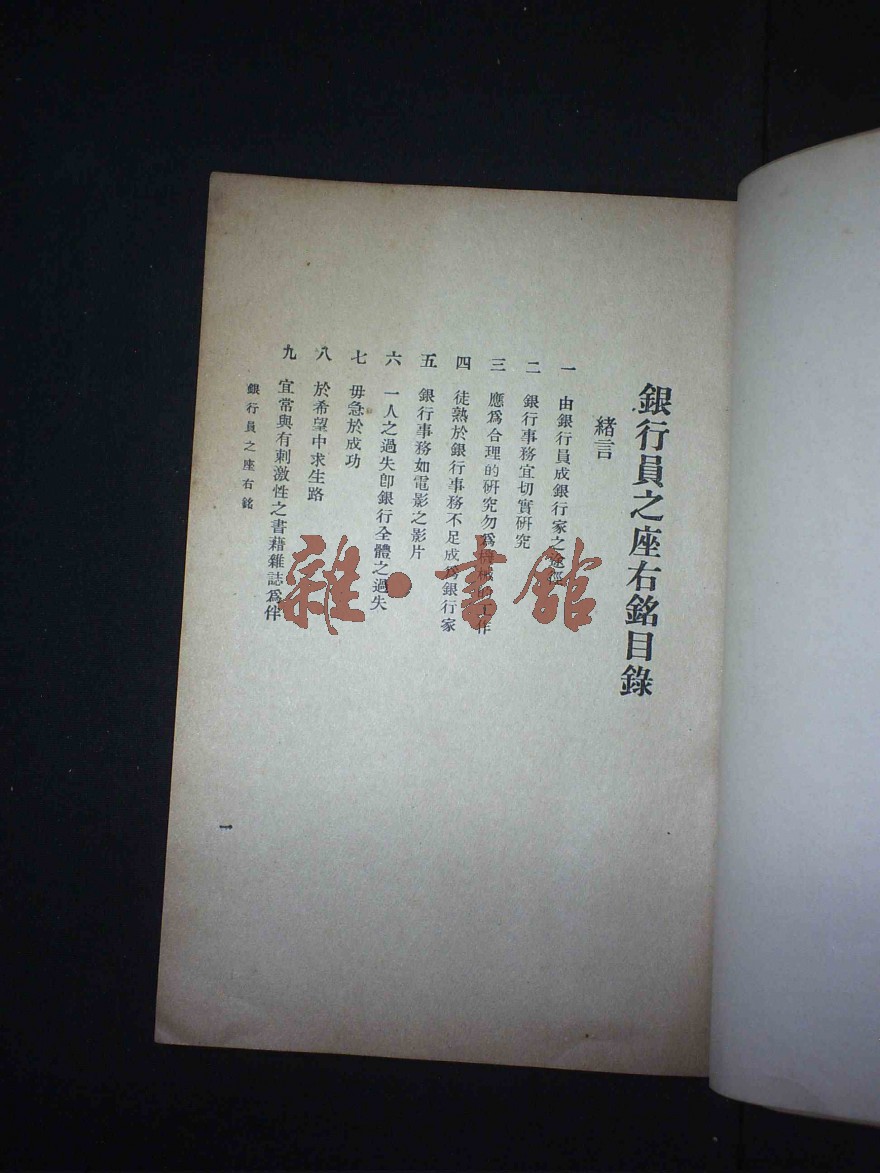 銀行員之座右銘目錄
緒言
一 由銀行員成銀行家之途徑
二 銀行事務宜切實研究
三 應爲合理的研究勿爲機械的工作
四 徒熟於銀行事務不足成爲銀行家
五 銀行事務如電影之影片
六 一人之過失卽銀行全體之過失
七 毋急於成功
八 於希望中求生路
九 宜常與有刺激性之書藉雜誌爲伴
銀行員之座右銘
一
雜·書館